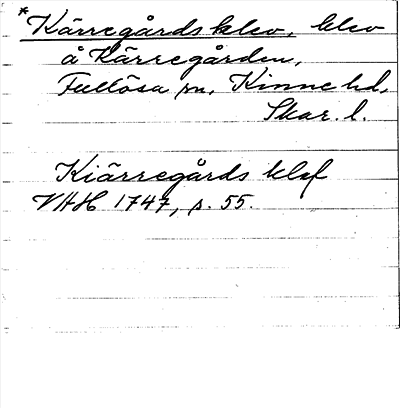 *Kärregårdsklev, klev
å Kärregården,
Fullösa sn, Kinne hd,
Skar. l.
Kiärregårds klef
VHH 1747, s. 55.